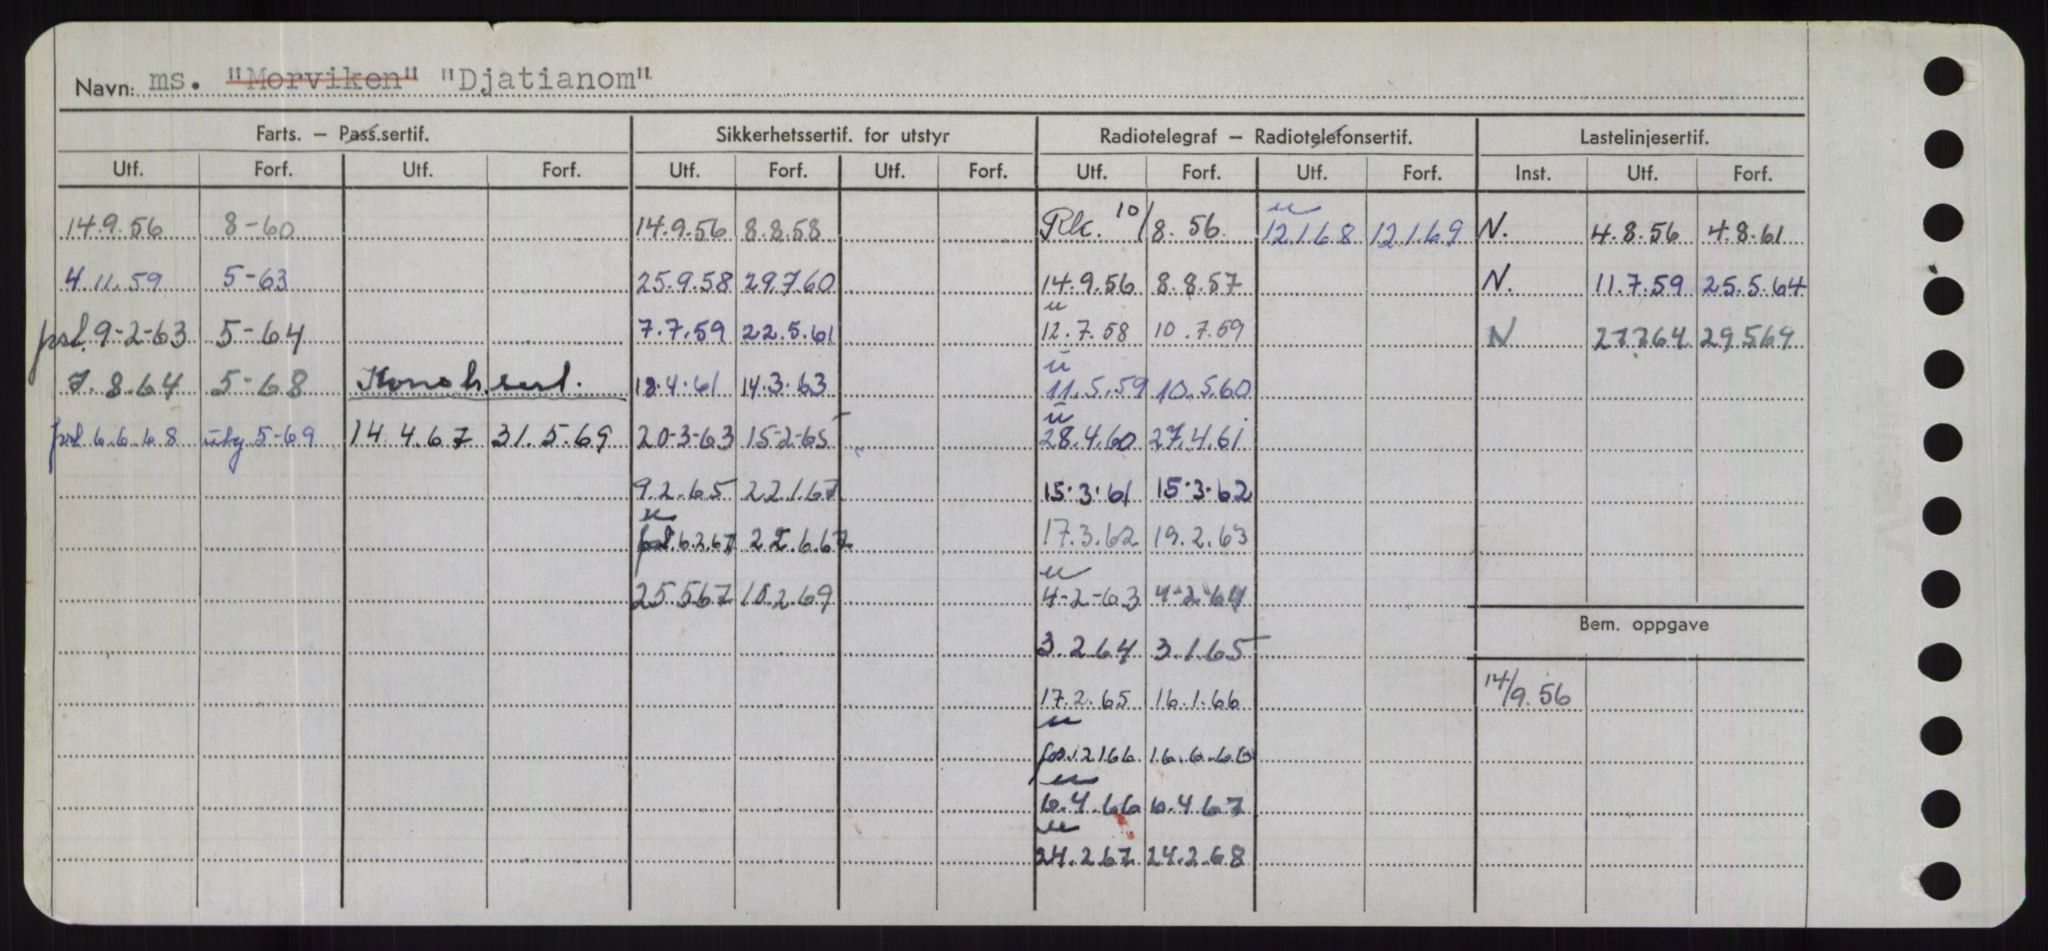 Navn: ms. "Morviken" "Djatianom"
Farts. — Pass.sertif. Sikkerhetssertif. for utstyr Radiotelegraf — Radiotelefonsertif. Lastelinjesertif.
Utf. Forf. Utf. Forf. Utf. Forf. Utf. Forf. Utf. Forf. Utf. Forf. Inst. Utf. Forf.
14.9.56 8-60 14.9.56 8.8.58 Rk. 10/8.56 u 12.1.68 12.1.69 N. 4.8.56 4.8.61
4.11.59 5-63 25.9.58 29.7.60 14.9.56 8.8.57 N. 11.7.59 25.5.64
psl. 9-2-63 5-64 7.7.59 22.5.61 u 12.7.58 10.7.59 N 27.7.64 29.5.69
7.8.64 5-68 18.4.61 14.3.63 u 11.5.59 10.5.60
psl 6.6.68 5-69 14.4.67 31.5.69 20-3-63 15-2-65 u 28.4.60 27.4.61
9.2.65 22.1.67 15.3.61 15.3.62
u psl. 6.2.67 22.6.67 17.3.62 19.2.63
25.5.67 18.2.69 u 4-2-63 4-2-64
Bem. oppgave
3.2.64 3.1.65
17.2.65 16.1.66 14/9.56
u 16.6.66
u 6.4.66 6.4.67
u 24.2.67 24.2.68